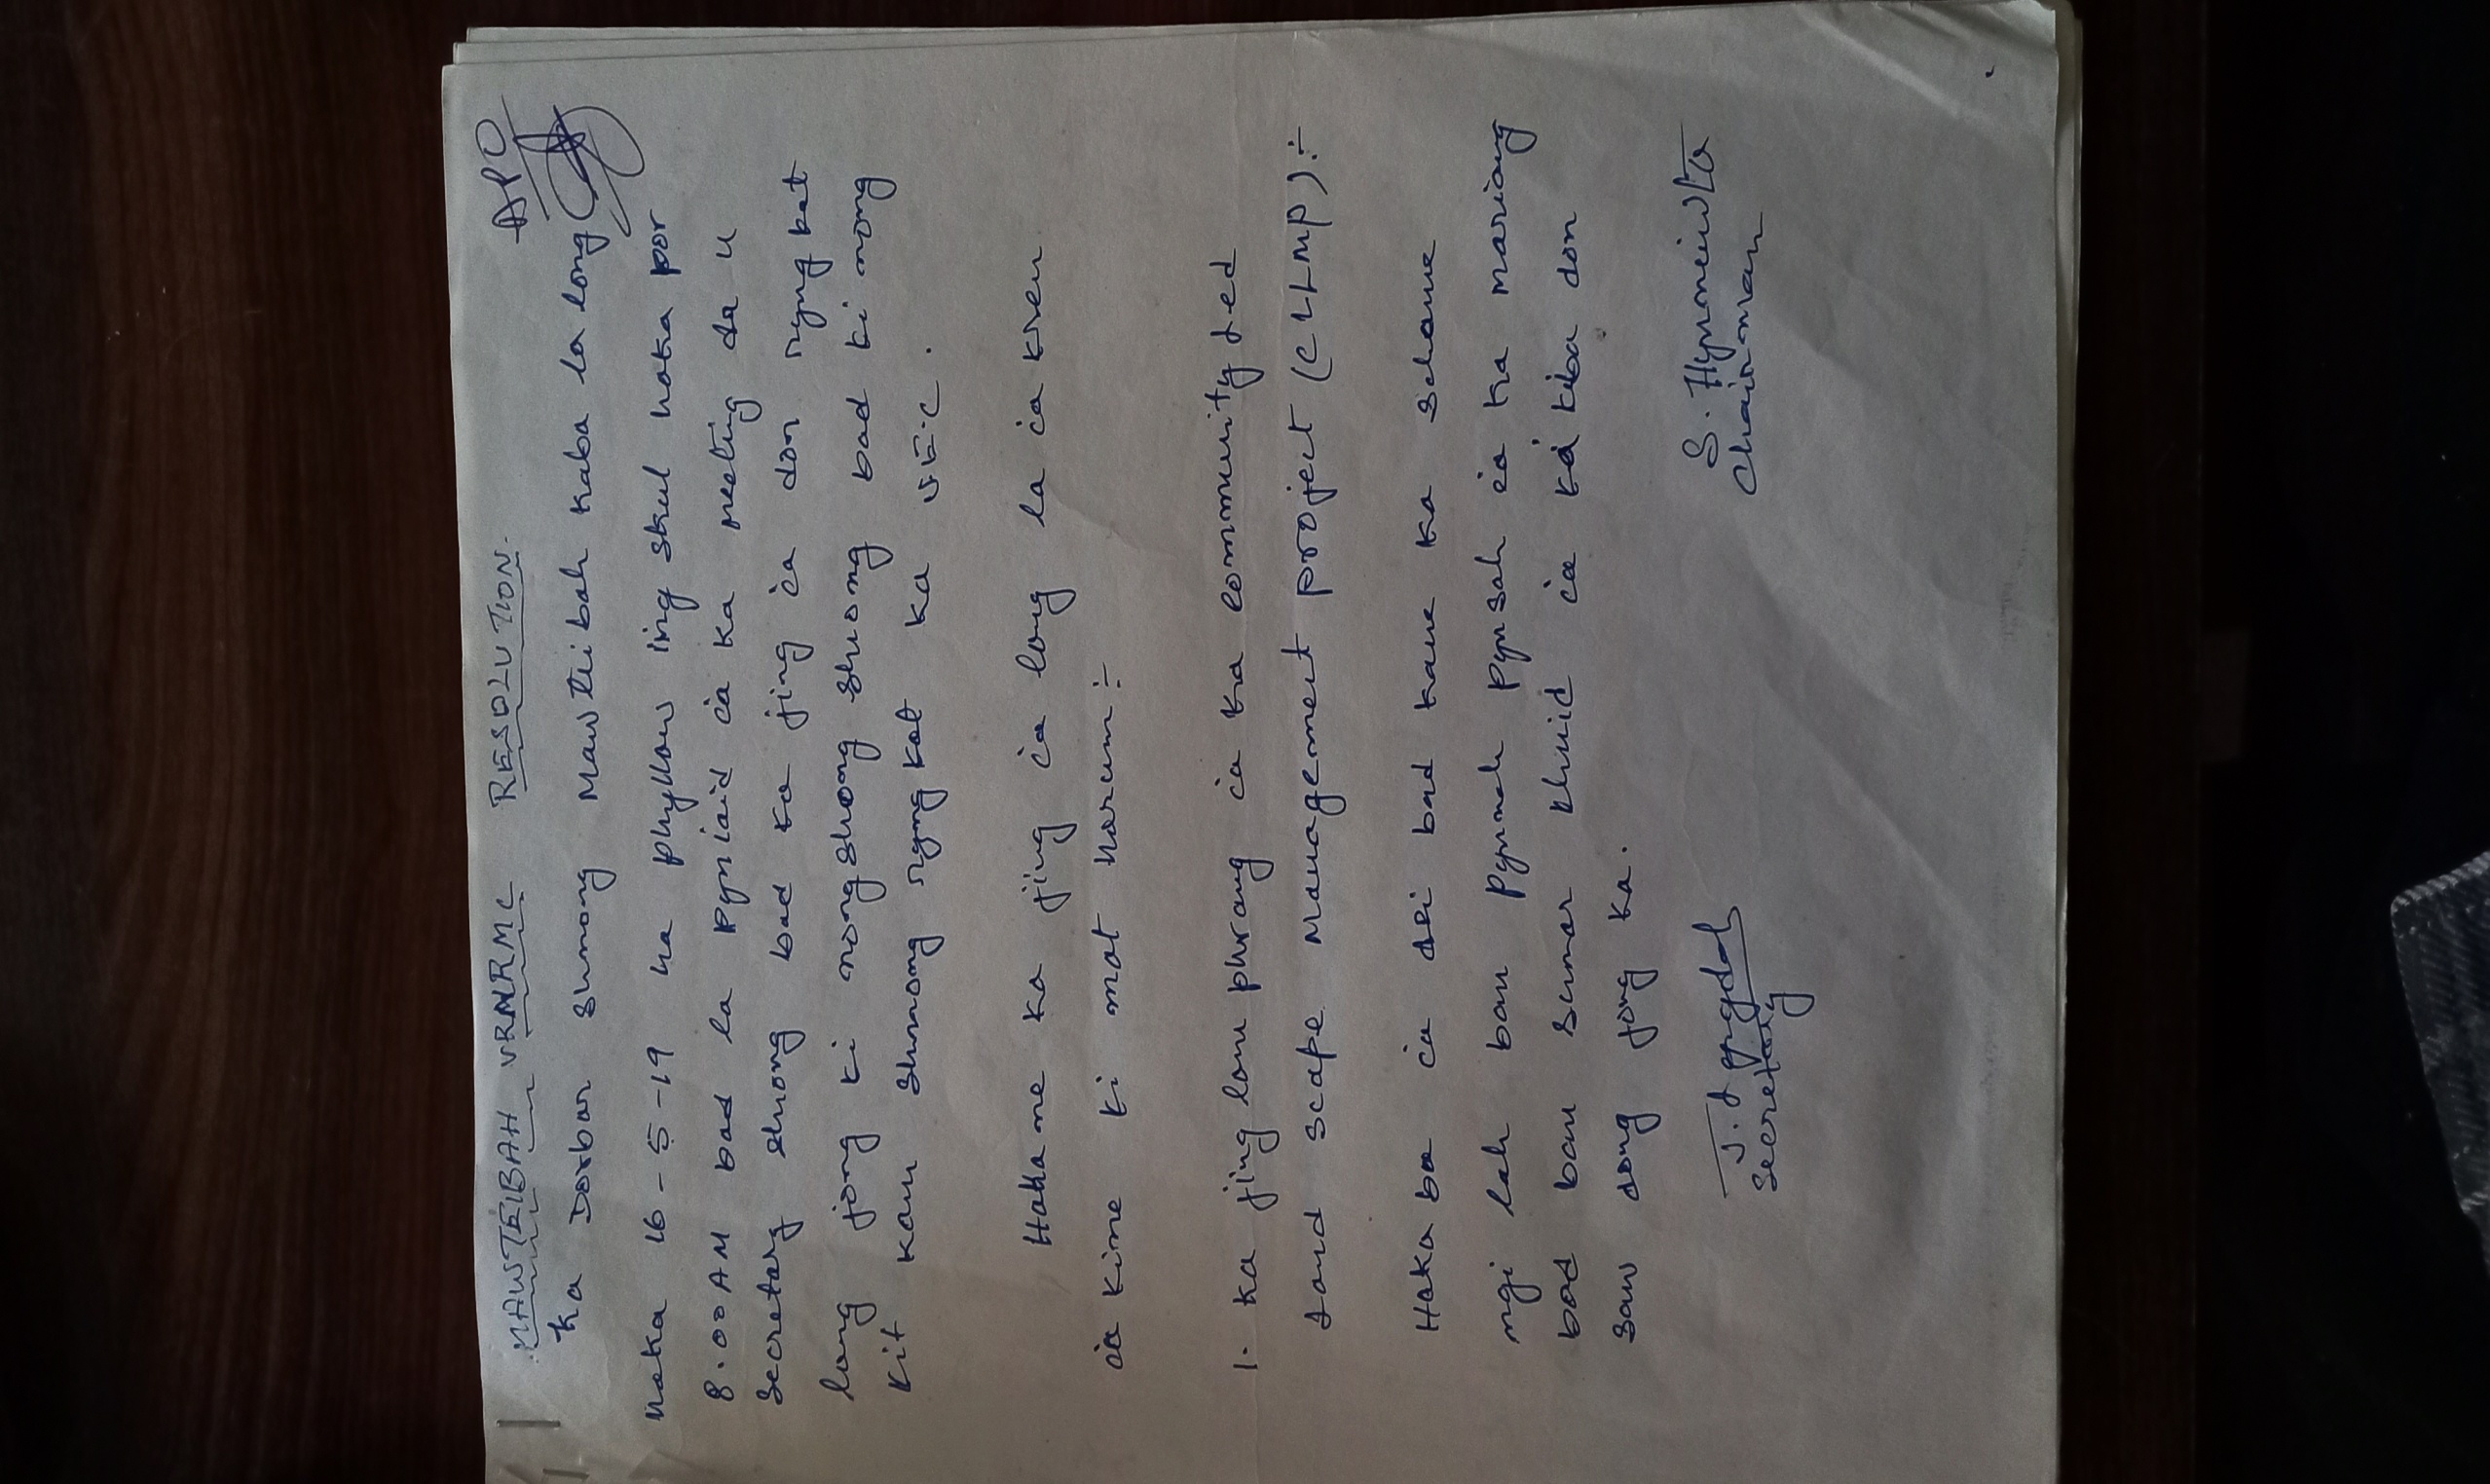 MAWTEIBAH VRNRMC RESOLUTION. APO
Ka Dorbar shnong Mawteibah kaba la long
haka 16-5-19 ha phyllaw ing skul haka por
8.00AM bad la pyniaid ia ka meeting da u
secretary shnong bad ka jing ia don ryng kat
lang jong ki nongshnong shnong bad ki nong
kit kam shnong ryng kat ka V.E.C.
Hakane ka jing ia long la ia kren
ia kine ki mat harum:-
1. ka jing lam phrang ia ka community Led
Land scape Management project (CLLMP):-
Haka ba ia dei bad kane ka scheme
ngi lah ban pynmah pynsah ia ka mariang
bad ban sumar khuid ia kd kiba don
saw dong jong ka.
J. Lyngdoh S. Hynniewta
Secretary Chairman